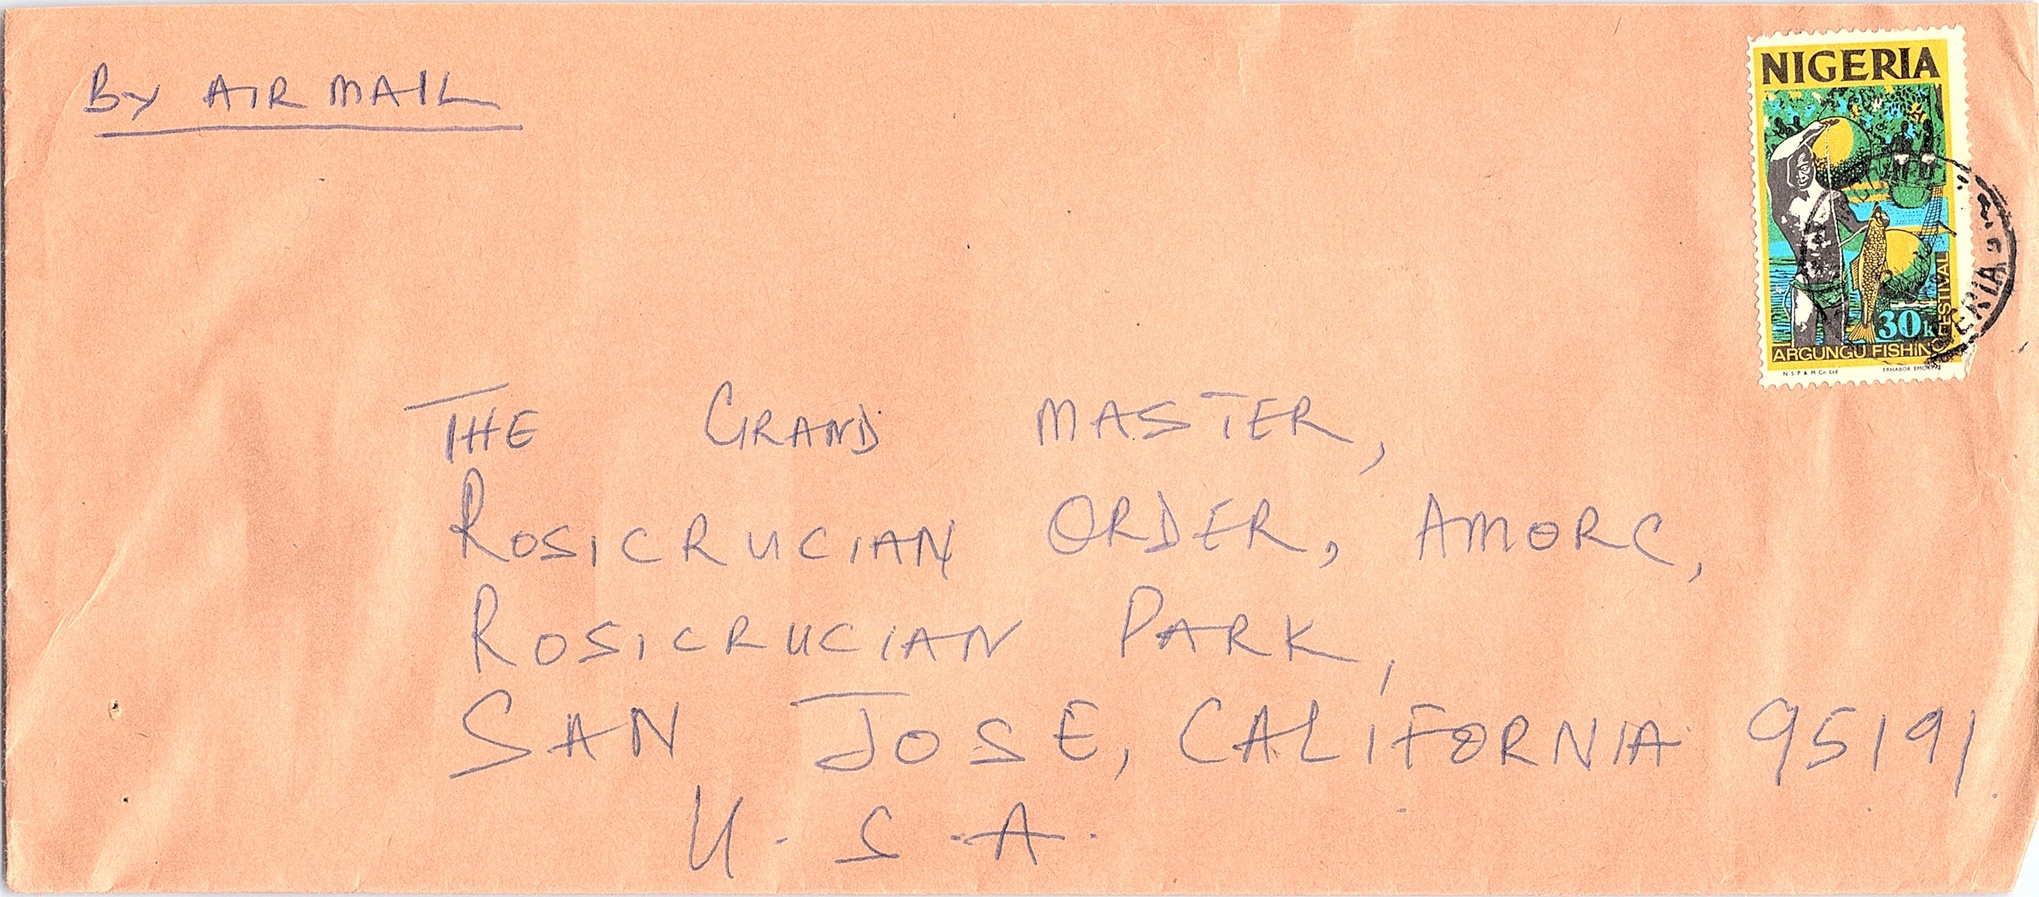 BY AIR MAIL
NIGERIA
30k
ARGUNGU FISHING FESTIVAL
N S P & M Co Ltd
ERHABOR EMOKPAE
THE GRAND MASTER,
ROSICRUCIAN ORDER, AMORC,
ROSICRUCIAN PARK,
SAN JOSE, CALIFORNIA 95191.
U.S.A.